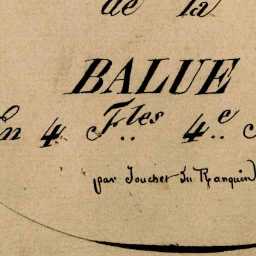 de la
BALUE
En 4 F.lles 4.e
par Jouchet du Ranquin